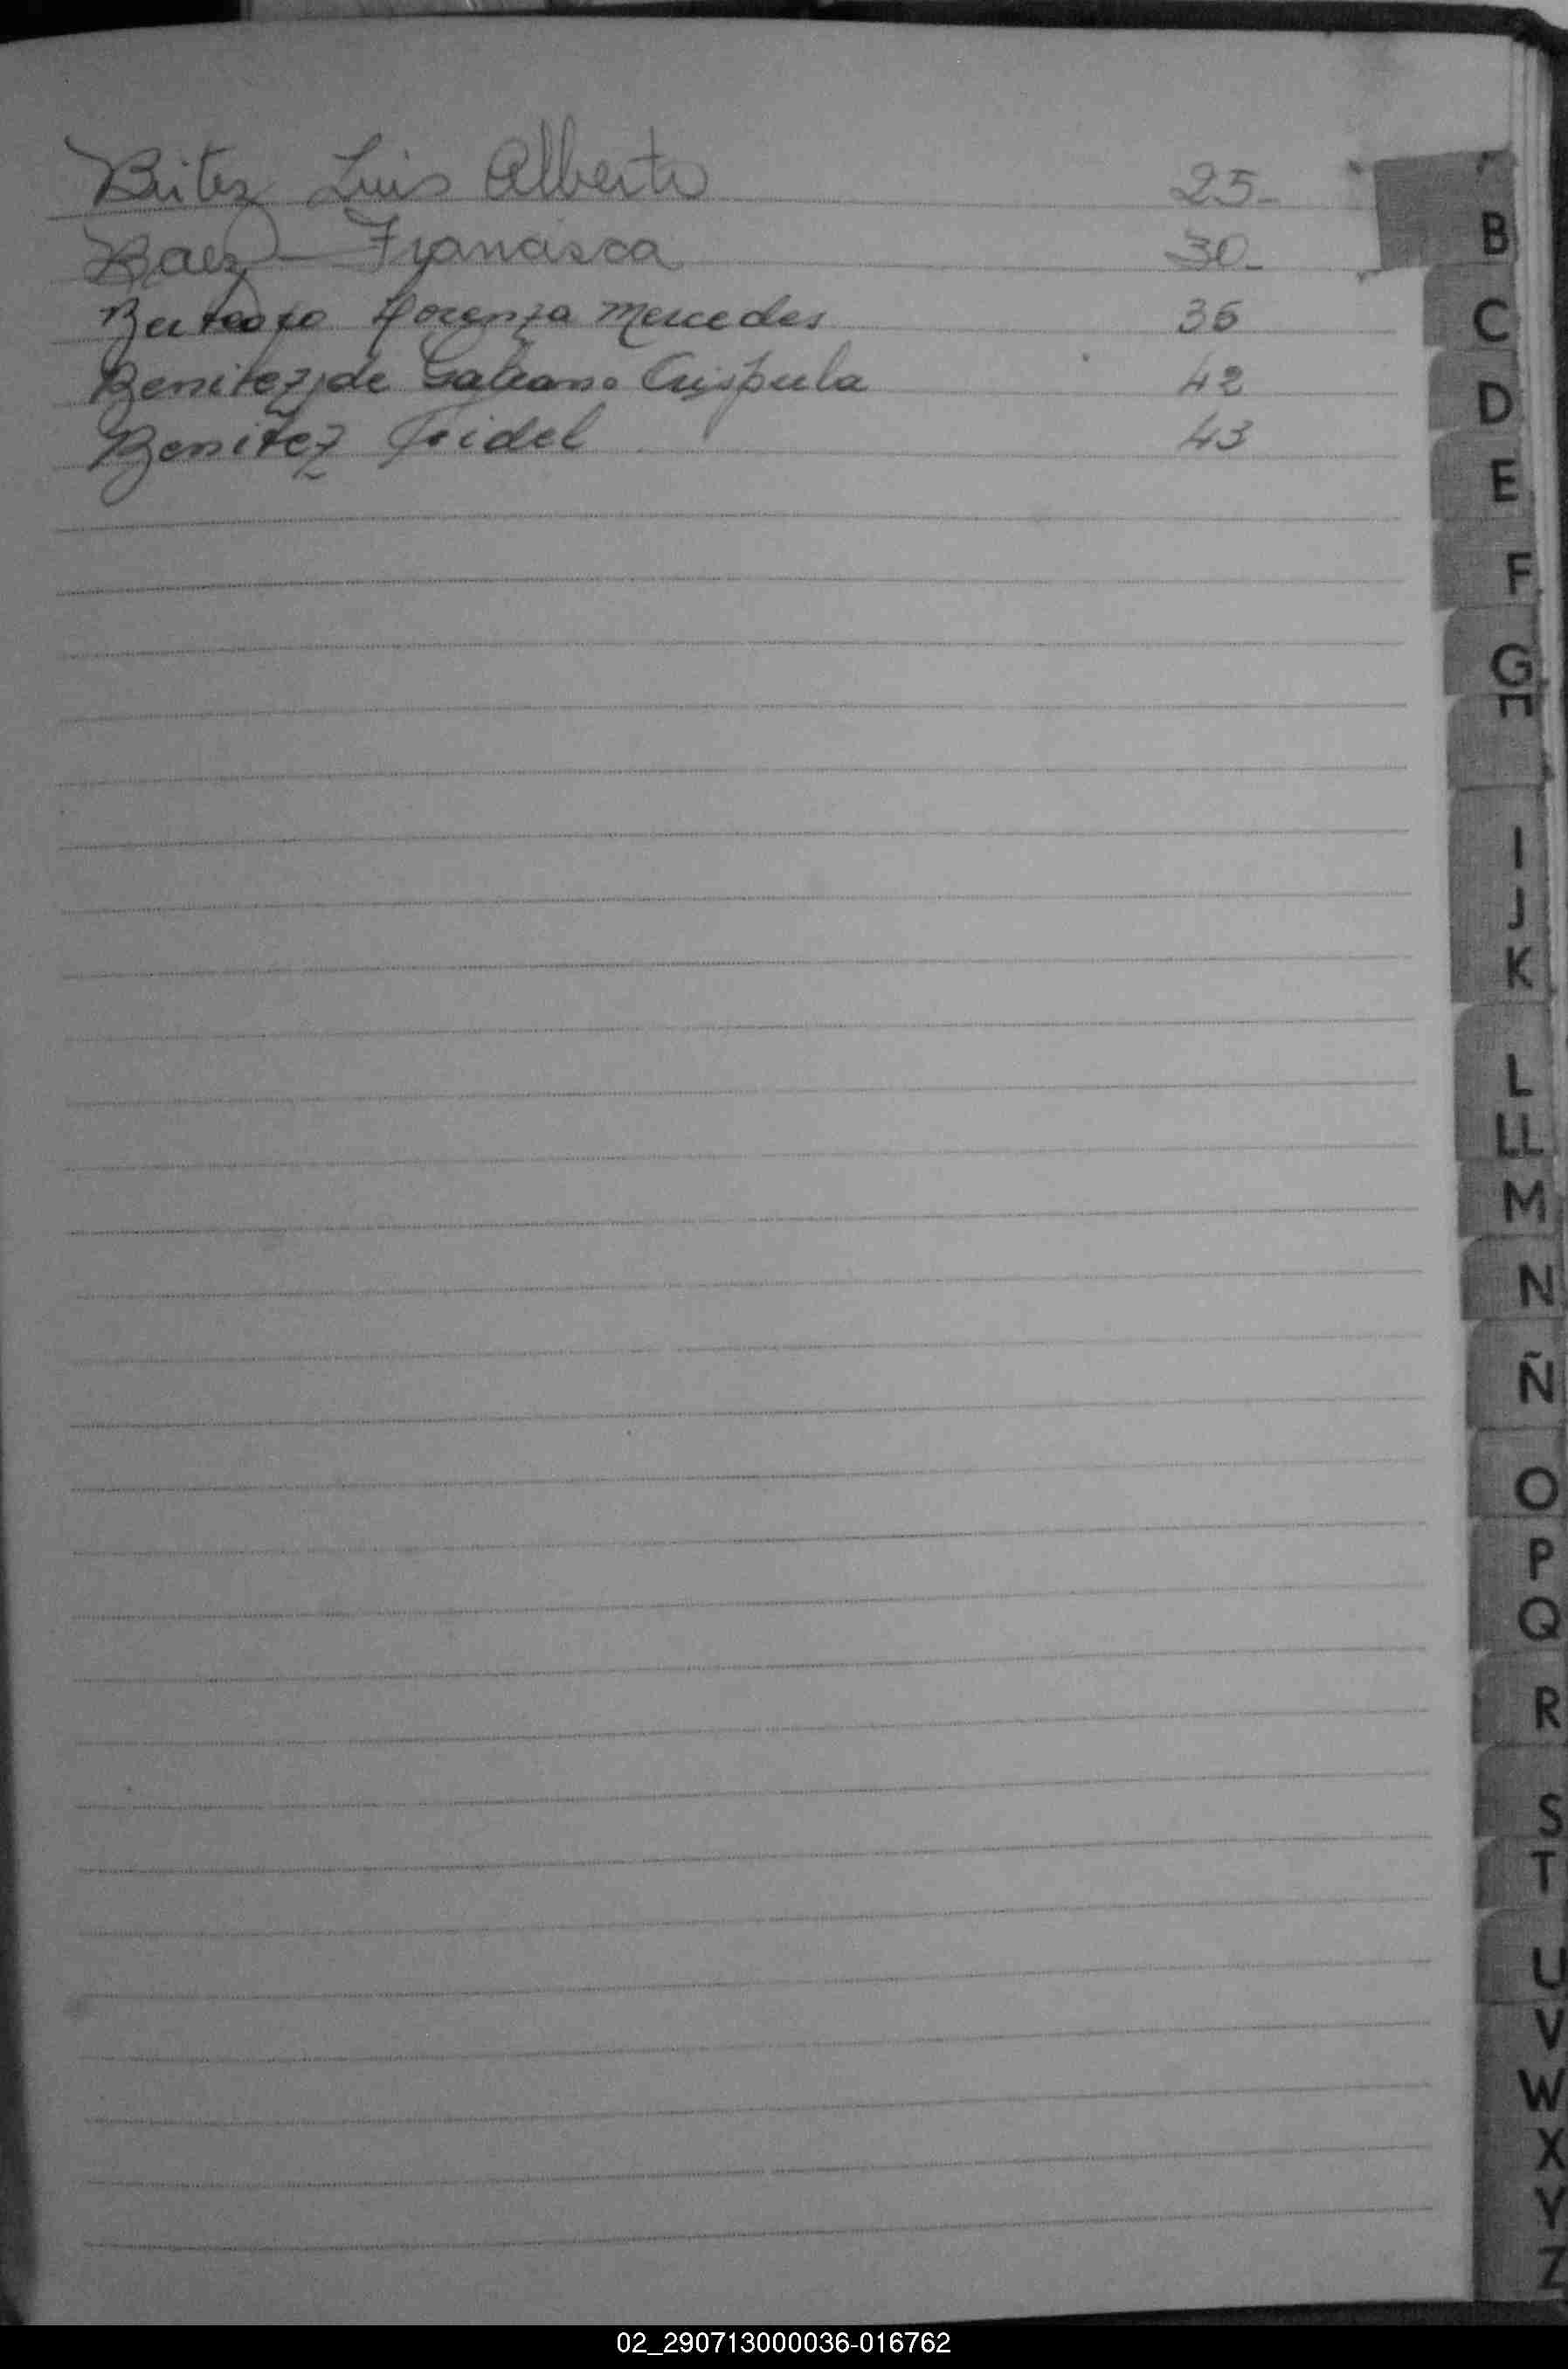 Luis Alberto 25-
B
Baez Francisca 30-
Mercedes 36
C
Benitez de Galeano Crispula 42
D
Benitez Fidel 43
E
F
G
H
I
J
K
L
LL
M
N
Ñ
O
P
Q
R
S
T
U
V
W
X
Y
Z
02_290713000036-016762